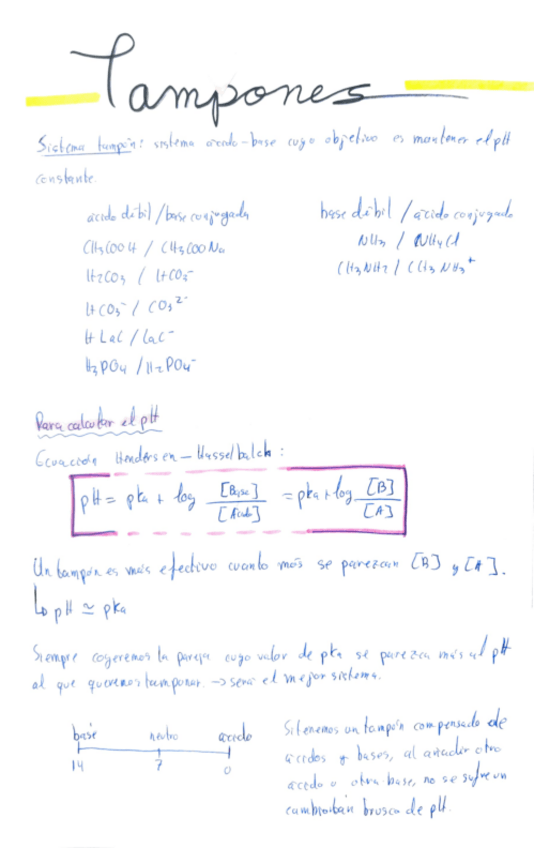 Tampones
Sistema tampón: sistema ácido-base cuyo objetivo es mantener el pH
constante.
ácido débil/base conjugada
CH3COOH / CH3COONa
H2CO3 / HCO3-
HCO3- / CO3 2-
H Lac / Lac-
H3PO4 / H2PO4-
base débil / ácido conjugado
NH3 / NH4Cl
CH3NH2 / CH3NH3+
Para calcular el pH
Ecuación Hendersen-Hasselbalch:
pH = pka + log [Base]/[Ácido] = pka + log [B]/[A]
Un tampón es más efectivo cuanto más se parezcan [B] y [A].
↳ pH ≃ pka
Siempre cogeremos la pareja cuyo valor de pka se parezca más al pH
al que queremos tamponar. → será el mejor sistema.
base neutro ácido
14 7 0
Si tenemos un tampón compensado de
ácidos y bases, al añadir otro
ácido u otra base, no se sufre un
brusco de pH.